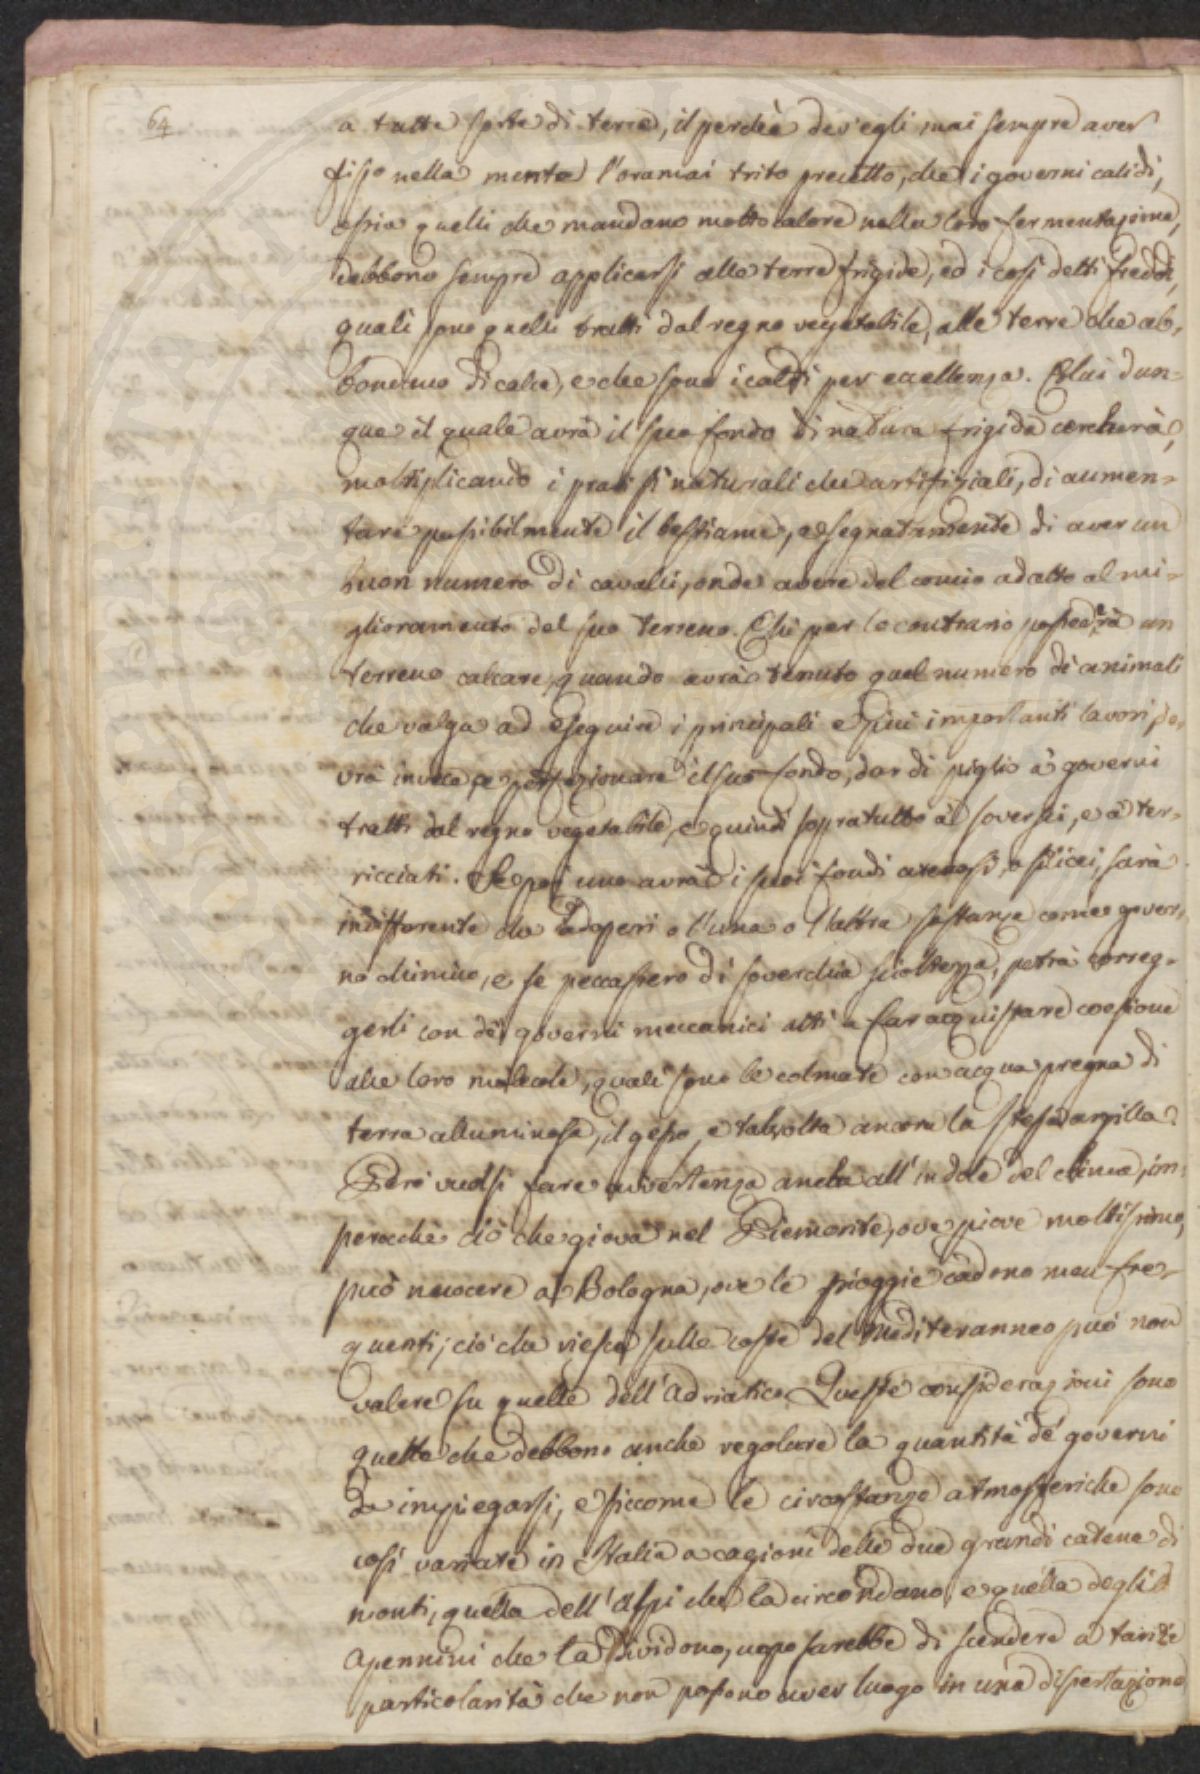 64
a tutte sorte di terre, il perchè dev'egli mai sempre aver
fisso nella mente l'oramai trito precetto, che i governi calidi,
ossia quelli che mandano molto calore nella loro fermentazione,
debbono sempre applicarsi alle terre frigide, ed i così detti freddi,
quali sono quelli tratti dal regno vegetabile, alle terre che ab-
bondano di calce, e che sono i caldi per eccellenza. Colui dun-
que il quale avrà il suo fondo di natura frigida cercherà,
moltiplicando i prati sì naturali che artifiziali, di aumen-
tare possibilmente il bestiame, e segnatamente di aver un
buon numero di cavalli, onde avere del concio adatto al mi-
glioramento del suo terreno. Chi per lo contrario possederà un
terreno calcare, quando avrà tenuto quel numero di animali
che valga ad eseguire i principali e più importanti lavori, do-
vrà invece a perfezionare il suo fondo, dar di piglio a' governi
tratti dal regno vegetabile, e quindi sopratutto ai soversci, e a' ter-
ricciati. Se poi uno avrà i suoi fondi arenosi, o silicei, sarà
indifferente che adoperi o l'una o l'altra sostanza come gover-
no chimico, e se peccassero di soverchia scioltezza, potrà correg-
gerli con dei governi meccanici atti a far acquistare coesione
alle loro molecole, quali sono le colmate con acqua pregna di
terra alluminosa, il gesso, e talvolta ancora la stessa argilla.
Però vuolsi fare avvertenza anche all'indole del clima, im-
perocchè ciò che giova nel Piemonte, ove piove moltissimo,
può nuocere a Bologna, ove le pioggie cadono men fre-
quenti; ciò che riesce sulle coste del Mediteranneo può non
valere su quelle dell'Adriatico. Queste considerazioni sono
quelle che debbono anche regolare la quantità de' governi
da impiegarsi, e siccome le circostanze atmosferiche sono
così variate in Italia a cagioni delle due grandi catene di
monti, quella dell'Alpi che la circondano, e quella degli
Apennini che la dividono, uopo sarebbe di scendere a tante
particolarità che non possono aver luogo in una dissertazione